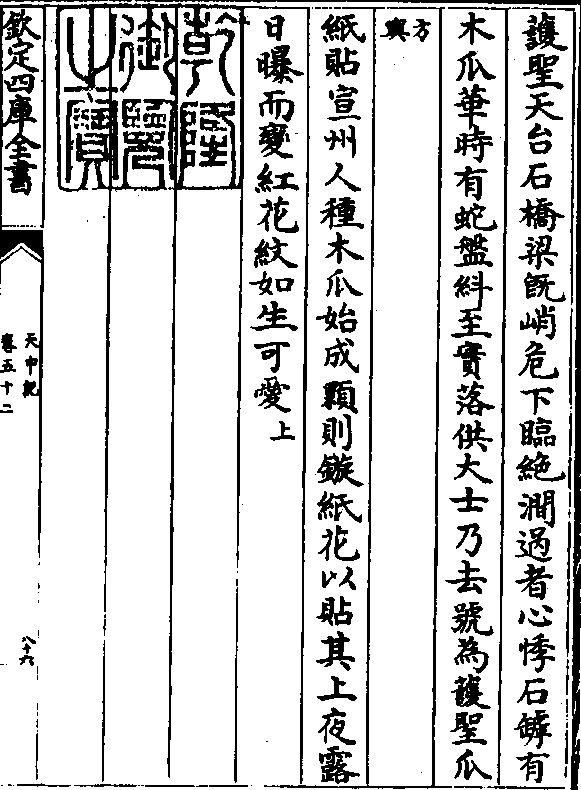 護聖天台石橋梁既峭危下臨絶澗過者心悸石罅有
木瓜華時有蛇盤糾至實落供大士乃去號為護聖瓜
方
輿
紙貼宣州人種木瓜始成顆則鏇紙花以貼其上夜露
日曝而變紅花紋如生可愛上
乾隆
御覽
之寳
欽定四庫全書
天中記
卷五十二
八十六